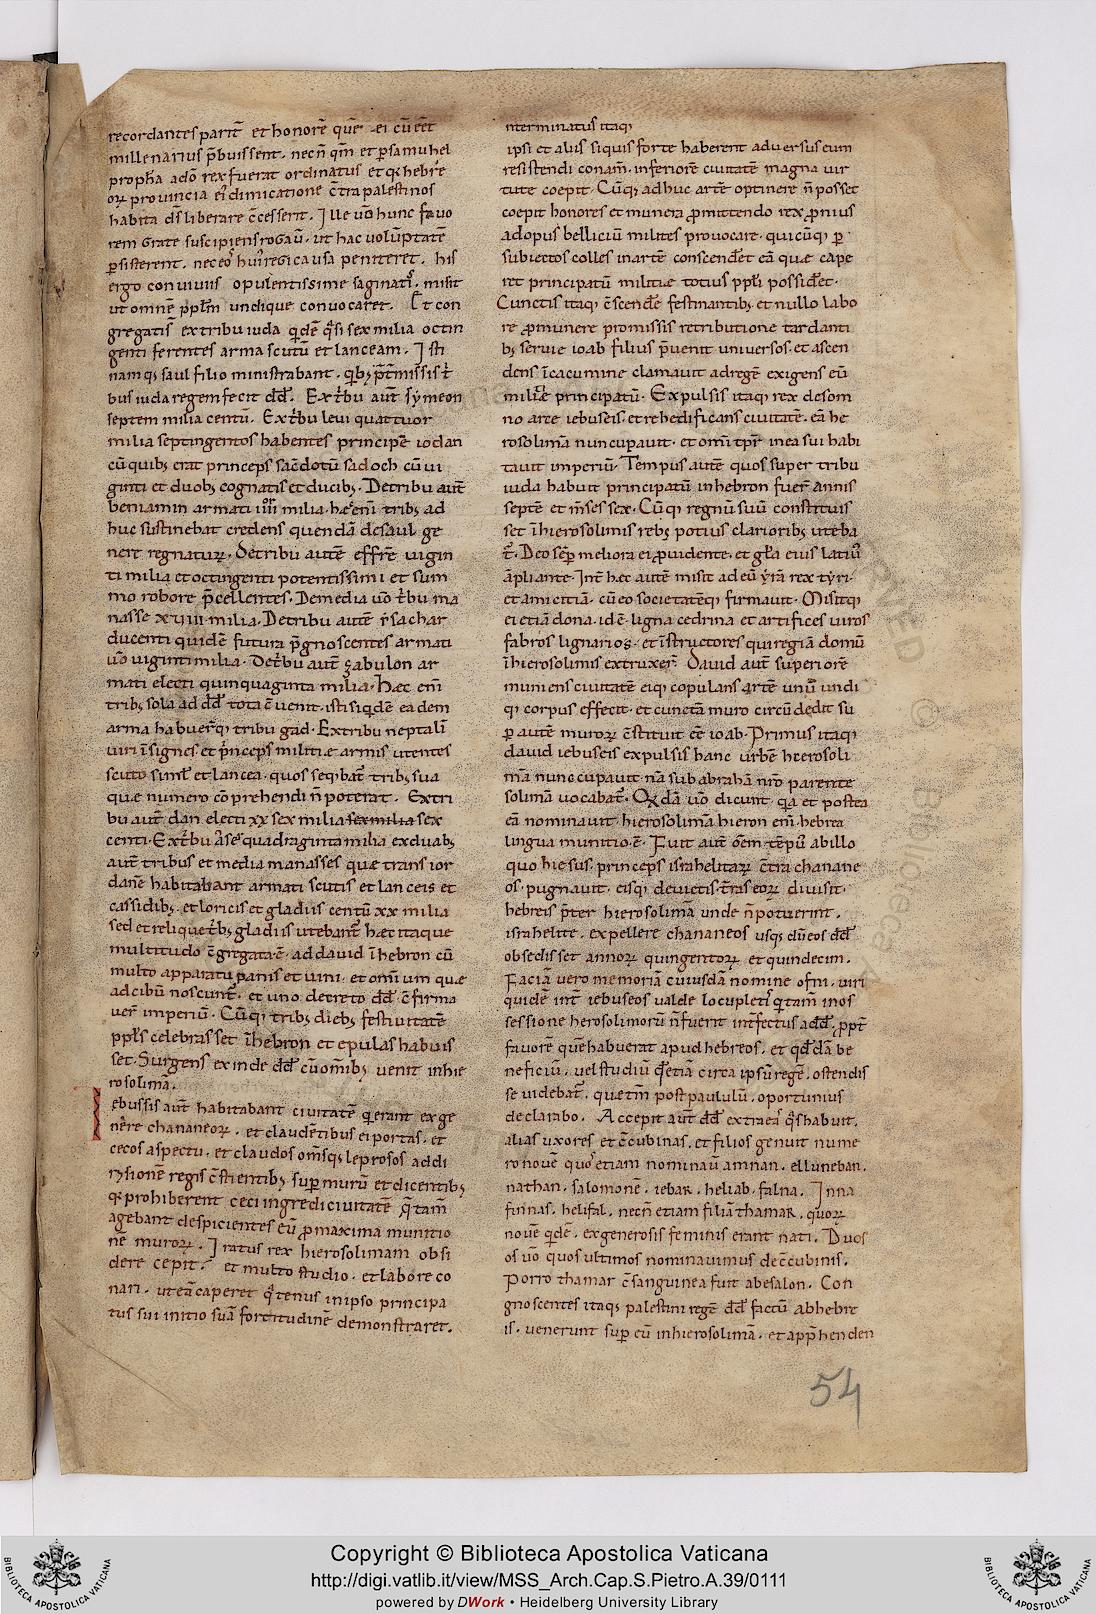 recordantes parit̄ et honorē quē ei cū eēt
millenarius p̄buissent. necn̄ qm̄ et per samuhel
propħa a dō rex fuerat ordinatus et qꝫ hebrę
oꝝ provincia ei dimicatione c̄tra palestinos
habita ds̄ liberare c̄cesserit. Ille v̄o hunc favo
rem grate suscipiens rogaū. ut hac volūptatē
ꝑsisterent. nec eos hui᾿ regi causa peniteret. his
ergo conviviis opulentissime saginatꝭ. misit
ut omnē ppl̄m undique convocaret. Et con
gregatis ex tribu iuda qidē qsi sex milia octin
genti ferentes arma scutū et lanceam. Isti
namqꝫ saul filio ministrabant. qibꝫ p̄tmissis t̄
bus iuda regem fecit dd̄. Ex t̄bu aut̄ symeon
septem milia centū. Ex t̄bu levi quattuor
milia septingentos habentes principē iodan
cū quibꝫ erat princeps sac̄dotū sadoch cū vi
ginti et duobꝫ cognatis et ducibꝫ. De tribu autē
beniamin armati iiii milia. hęc eni tribꝫ ad
huc sustinebat credens quendā de saul ge
nere regnaturꝝ. De tribu autē effrē vigin
ti milia et octingenti potentissimi et sum
mo robore p̄cellentes. De media v̄o t̄bu ma
nasse xviii milia. De tribu autē ysachar
ducenti quidē futura p̄gnoscentes armati
v̄o viginti milia. De t̄bu aut̄ zabulon ar
mati electi quinquaginta milia. Hæc eni
tribꝫ sola ad dd̄ tota c̄venit. isti siqidē eadem
arma habuerqꝫ tribu gad. Ex tribu neptali
viri īsignes et p̄nceps militiæ armis utentes
scuto siml̄ et lancea. quos seqbat̄ tribꝫ sua
quæ numero cōprehendi n̄ poterat. Ex tri
bu aut̄ dan electi xx sex milia sex milia sex
centi. Ex t̄bu aser quadraginta milia ex duabꝫ
aut̄ tribus et media manasses quæ trans ior
danē habitabant armati scutis et lanceis et
cassidibꝫ. et loricis et gladiis centū xx milia
sed et reliquę t̄bꝫ gladiis utebant̄ hæc itaque
multitudo c̄gregata ē. ad david ī hebron cū
multo apparatu panis et vini. et omium quæ
ad cibū noscunt̄. et uno decreto dd̄ c̄firma
ver̄ imperiū. Cūqꝫ tribꝫ diebꝫ festivitatē
ppl̄s celebrasset ī hebron et epulas habuis
set. Surgens exinde dd̄ cū omibꝫ venit in hie
rosolimā.
Iebussis aut̄ habitabant civitatē q erant ex ge
nere chananeoꝝ. et claudētibus ei portas. et
cecos aspectu. et claudos omsqꝫ leprosos ad di
rysionē regis c̄stientibꝫ suꝑ murū et dicentibꝫ
qꝫ prohiberent ceci ingredi civitatē qꝫ tam̄
agebant despicientes eū ꝓ maxima munitio
nē muroꝝ. Iratus rex hierosolimam obsi
dere cepit. et multo studio. et labore co
nari. ut eā caperet qtenus in ipso principa
tus sui initio suā fortitudinē demonstraret.
nterminatus itaqꝫ
ipsi et aliis si quis forte haberent adversus eum
resistendi conam̄. inferiorē civitatē magna vir
tute coepit. Cūqꝫ adhuc artē optinere n̄ posset
coepit honores et munera ꝓmittendo rex ꝓnius
ad opus bellicū milites provocare. quicūqꝫ ꝑ
subiectos colles in artē conscendet eā quæ cape
ret principatū militiæ totius ppl̄i possidet.
Cunctis itaqꝫ c̄scende festinantibꝫ. et nullo labo
re ꝓ munere promissis retributione tardanti
bꝫ servie ioab filius p̄venit universos. et ascen
dens ī cacumine clamavit ad regē exigens eū
militię principatū. Expulsis itaqꝫ rex de som
no arte iebuseis. et rehedificans civitatē. eā he
rosolimā nuncupavit. et omi tpr̄ in ea sui habi
tavit imperiū. Tempus autē quos super tribu
iuda habuit principatū in hebron fuer̄ annis
septē et m̄ses sex. Cūqꝫ regnū suū constituis
set ī hierosolimis rebꝫ potius clarioribꝫ uteba
t̄. Deo semp̄ meliora ei ꝓvidente. et gl̄a eius latiꝰ
āpliante. Int̄ hæc autē misit ad eū yrā rex tyri.
et amicitiā. cū eo societatēqꝫ firmavit. Misitqꝫ
ei etiā dona. idē ligna cedrina et artifices viros
fabros lignarios. et īstructores qui regiā domū
ī hierosolimis extruxer̄. David aut̄ superiorē
muniens civitatē eiqꝫ copulans artē unū undi
qꝫ corpus effecit. et cunctā muro circūdedit su
ꝑ autē muroꝝ c̄stituit c̄e ioab. Primus itaqꝫ
david iebuseis expulsis hanc urbē hierosoli
mā nunccupavit. nā sub abrahā nr̄o parente
solimā vocabat̄. Qdā v̄o dicunt. qa et postea
eā nominavit. hierosolimā hieron eni hebrea
lingua munitio ē. Fuit aut̄ oēm tēpus ab illo
quo hiesus. princeps israhelitarꝝ c̄tra chanane
os. pugnavit. eisqꝫ devictis. t̄ras eoꝝ divisit.
hebreis p̄ter hierosolimā unde n̄ potuerint.
israhelite. expellere chananeos usqꝫ dū eos dd̄
obsedisset annoꝝ quingentoꝝ et quindecim.
Faciā vero memoriā cuiusdā nomine ofni. viri
quidē int̄ iebuseos valde locupletis q tam̄ in os
sessione herosolimorū n̄ fuerit int̄fectus a dd̄. ꝓpt̄
favorē quē habuerat apud hebreos. et qddā be
neficiū. vel studiū qd etiā circa ipsū regē. ostendis
se videbat̄. quē tm̄ post paululū. oportunius
declarabo. Accepit aut̄ dd̄ extra eas qs habuit.
alias uxores et c̄cubinas. et filios genuit nume
ro novē quos etiam nominavi amnan. elluneban.
nathan. salomonē. iebar. heliab. falna. Inna
finnas. helifal. necn̄ etiam filiā thamar. quoꝝ
novē qidē. ex generosis feminis erant nati. Duos
os v̄o quos ultimos nominavimus de c̄cubinis.
Porro thamar c̄sanguinea fuit abesalon. Con
gnoscentes itaqꝫ palestini regē dd̄ factū ab hebre
is. venerunt suꝑ eū in hierosolimā. et app̄henden
54
Copyright © Biblioteca Apostolica Vaticana
http://digi.vatlib.it/view/MSS_Arch.Cap.S.Pietro.A.39/0111
powered by DWork • Heidelberg University Library